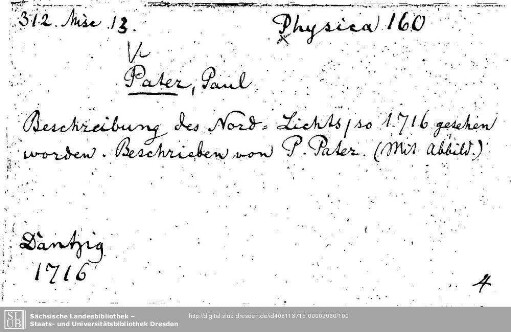 312. Misc. 13.
Physica 160
Pater, Paul
Beschreibung des Nord-Lichts / so 1716 gesehen
worden. Beschrieben von P. Pater. (Mit Abbild.)
Dantzig
1716
4
Sächsische Landesbibliothek –
Staats- und Universitätsbibliothek Dresden